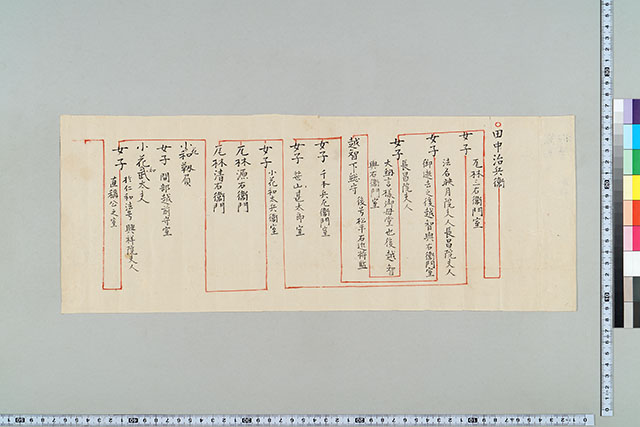 田中治兵衛
女子
尾林二右衛門室
女子
法名映月院夫人長昌院夫人
御逝去之後越智与右衛門室
女子
長昌院夫人
大納言様御母堂也後越智
与右衛門室
越智下総守
後号松平右近将監
女子
千本兵左衛門室
女子
笹山甚太郎室
女子
小花和太兵衛室
尾林源右衛門
尾林清右衛門
女子
間部越前守室
小花和武太夫
女子
於仁和法号
夫人
之室